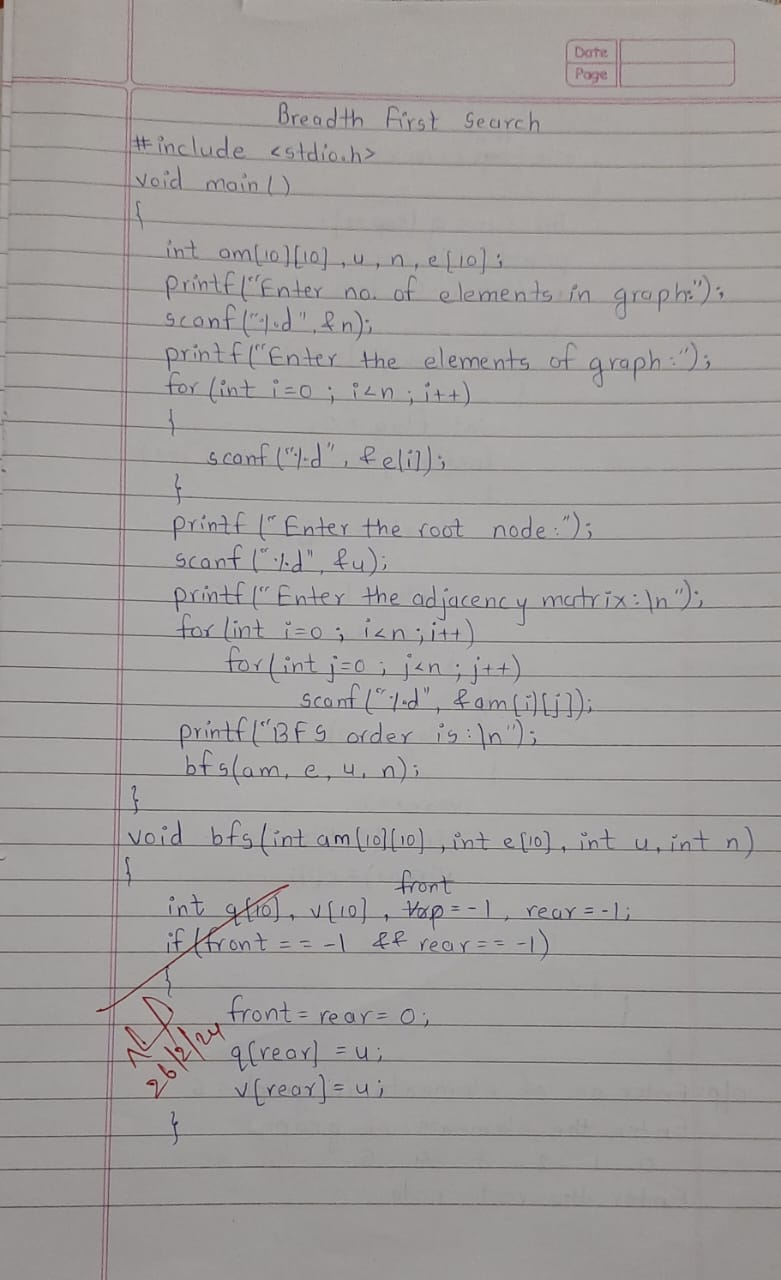 Date
Page
Breadth First Search
#include <stdio.h>
void main()
{
int am[10][10], u, n, e[10];
printf("Enter no. of elements in graph:");
scanf("%d", &n);
printf("Enter the elements of graph:");
for (int i=0; i<n; i++)
{
scanf("%d", &e[i]);
}
printf("Enter the root node:");
scanf("%d", &u);
printf("Enter the adjacency matrix:\n");
for (int i=0; i<n; i++)
for (int j=0; j<n; j++)
scanf("%d", &am[i][j]);
printf("BFS order is:\n");
bfs(am, e, u, n);
}
void bfs(int am[10][10], int e[10], int u, int n)
{
front
int q[10], v[10], = -1, rear = -1;
if (front == -1 && rear == -1)
{
front = rear = 0;
q[rear] = u;
26/2/24
v[rear] = u;
}